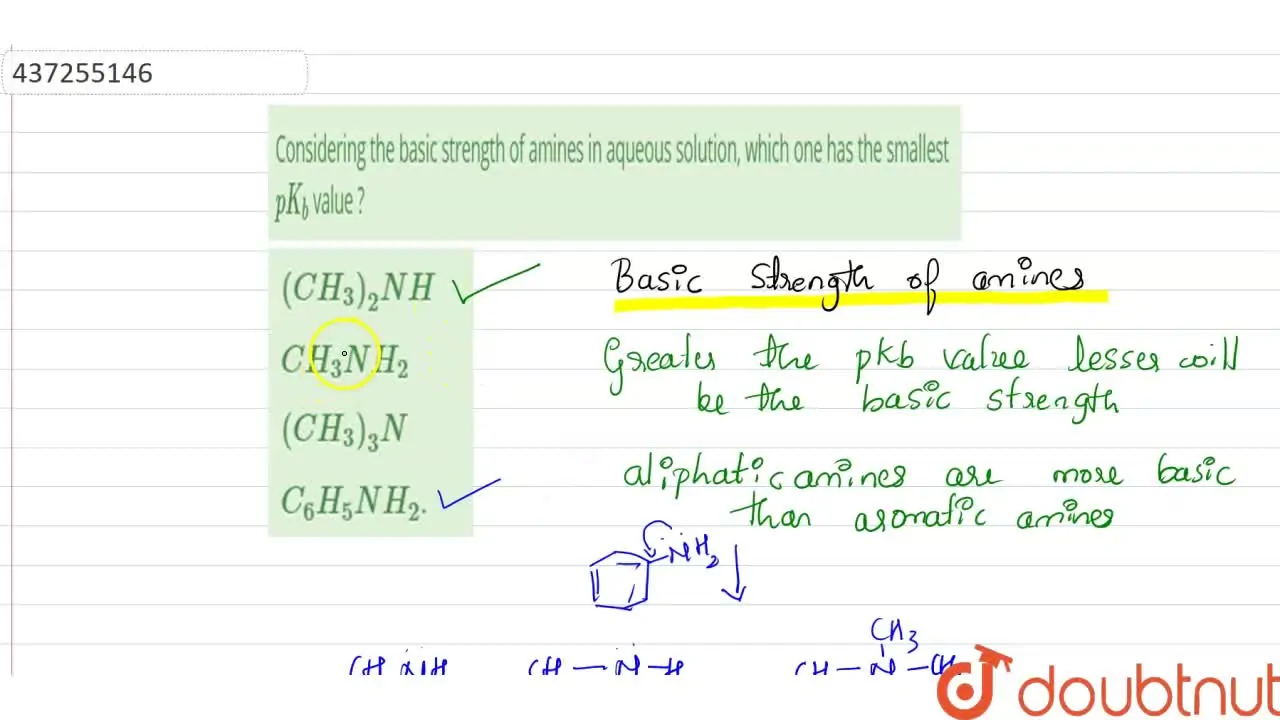 437255146
Considering the basic strength of amines in aqueous solution, which one has the smallest
pK_b value ?
(CH_3)_2NH
Basic Strength of amines
CH_3NH_2
Greater the pkb value lesser will
be the basic strength
(CH_3)_3N
aliphatic amines are more basic
than aromatic amines
C_6H_5NH_2.
NH_2
CH_3
CH NH
CH — N — H
CH — N — CH
doubtnut